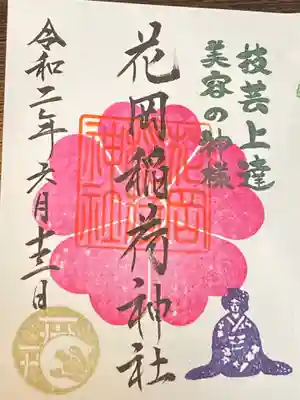 技芸上達
美容の神様
花岡稲荷神社
花岡
稲荷
神社
令和二年六月日